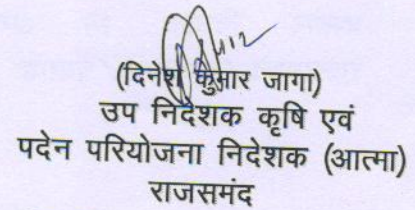 (दिनेश कुमार जागा)
उप निदेशक कृषि एवं
पदेन परियोजना निदेशक (आत्मा)
राजसमंद